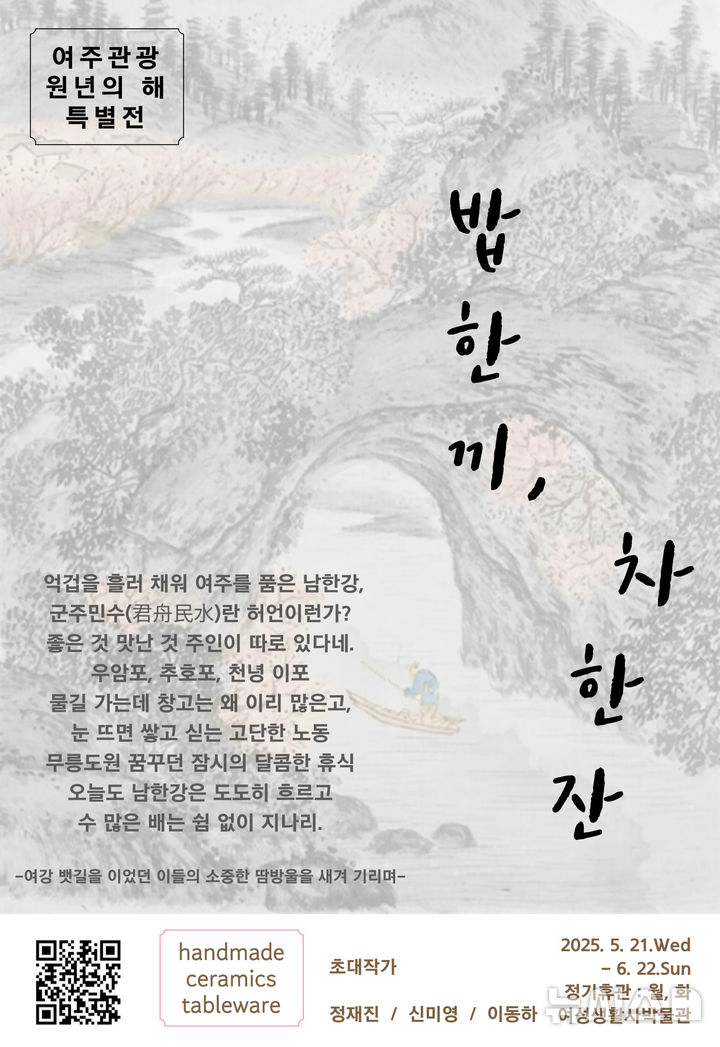 여주관광
원년의 해
특별전
밥
한
끼,
차
한
잔
억겁을 흘러 채워 여주를 품은 남한강,
군주민수(君舟民水)란 허언이런가?
좋은 것 맛난 것 주인이 따로 있다네.
우암포, 추호포, 천녕 이포
물길 가는데 창고는 왜 이리 많은고,
눈 뜨면 쌓고 싣는 고단한 노동
무릉도원 꿈꾸던 잠시의 달콤한 휴식
오늘도 남한강은 도도히 흐르고
수 많은 배는 쉼 없이 지나리.
-여강 뱃길을 이었던 이들의 소중한 땀방울을 새겨 기리며-
handmade
ceramics
tableware
초대작가
정재진 / 신미영 / 이동하
2025. 5. 21.Wed
- 6. 22.Sun
정기휴관 : 월, 화
여성생활사박물관
뉴시스